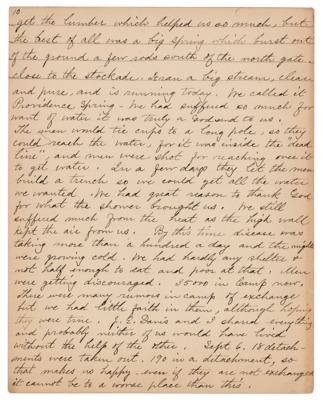 10
get the lumber which helped us so much, but
the best of all was a big spring which burst out
of the ground a few rods south of the north gate
close to the stockade. It ran a big stream, clear
and pure, and is running today. We called it
Providence Spring - We had suffered so much for
want of water it was truly a Godsend to us.
The men would tie cups to a long pole, so they
could reach the water, for it was inside the "dead
line", and men were shot for reaching over it
to get water. In a few days they let the men
build a trench so we could get all the water
we wanted. We had great reason to thank God
for what the shower brought us. We still
suffered much from the heat as the high wall
kept the air from us. By this time disease was
taking more than a hundred a day and the nights
were growing cold. We had hardly any shelter &
not half enough to eat and poor at that. Men
were getting discouraged. 35000 in Camp now.
There were many rumors in camp of exchange
but we had little faith in them, although hoping
they were true. J. E. Davis and I shared everything
and probably neither of us would have lived
without the help of the other. Sept 6. 18 detach-
ments were taken out. 190 in a detachment, so
that makes us happy - even if they are not exchanged
it cannot be to a worse place than this.